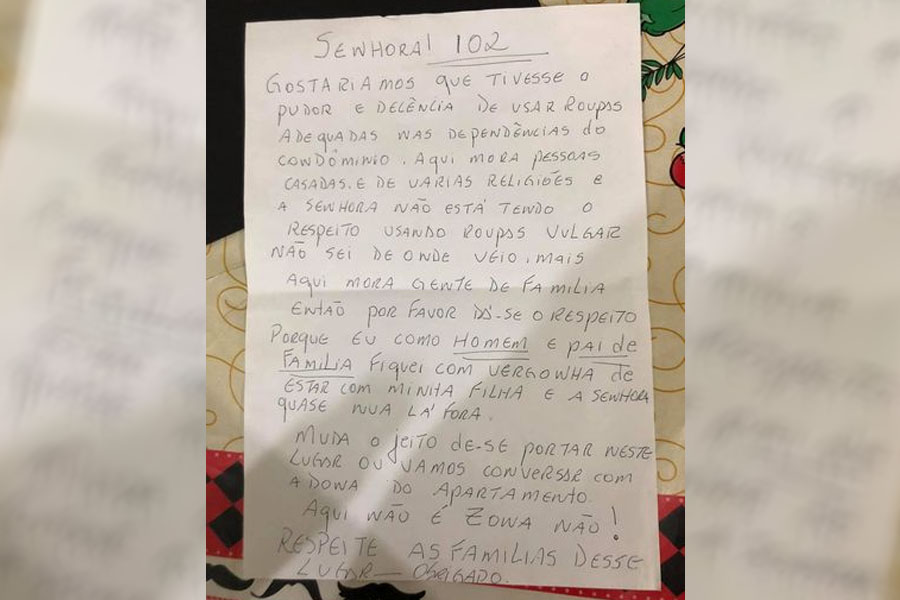 SENHORA! 102
GOSTARIAMOS QUE TIVESSE O
PUDOR E DECÊNCIA DE USAR ROUPAS
ADEQUADAS NAS DEPENDÊNCIAS do
CONDÔMINIO. AQUI MORA PESSOAS
CASADAS. E DE VARIAS RELIGIÕES E
A SENHORA NÃO ESTÁ TENDO O
RESPEITO USANDO ROUPAS VULGAR
NÃO SEI DE ONDE VEIO, MAIS
AQUI MORA GENTE DE FAMILIA
ENTÃO POR FAVOR DÁ-SE O RESPEITO
PORQUE EU COMO HOMEM E PAI de
FAMILIA FIQUEI COM VERGONHA de
ESTAR COM MINHA FILHA E A SENHORA
QUASE NUA LÁ FORA.
MUDA O JEITO de-SE PORTAR NESTE
LUGAR OU VAMOS CONVERSAR COM
A DONA DO APARTAMENTO
AQUI NÃO É ZONA NÃO!
RESPEITE AS FAMILIAS DESSE
LUGAR — OBRIGADO.